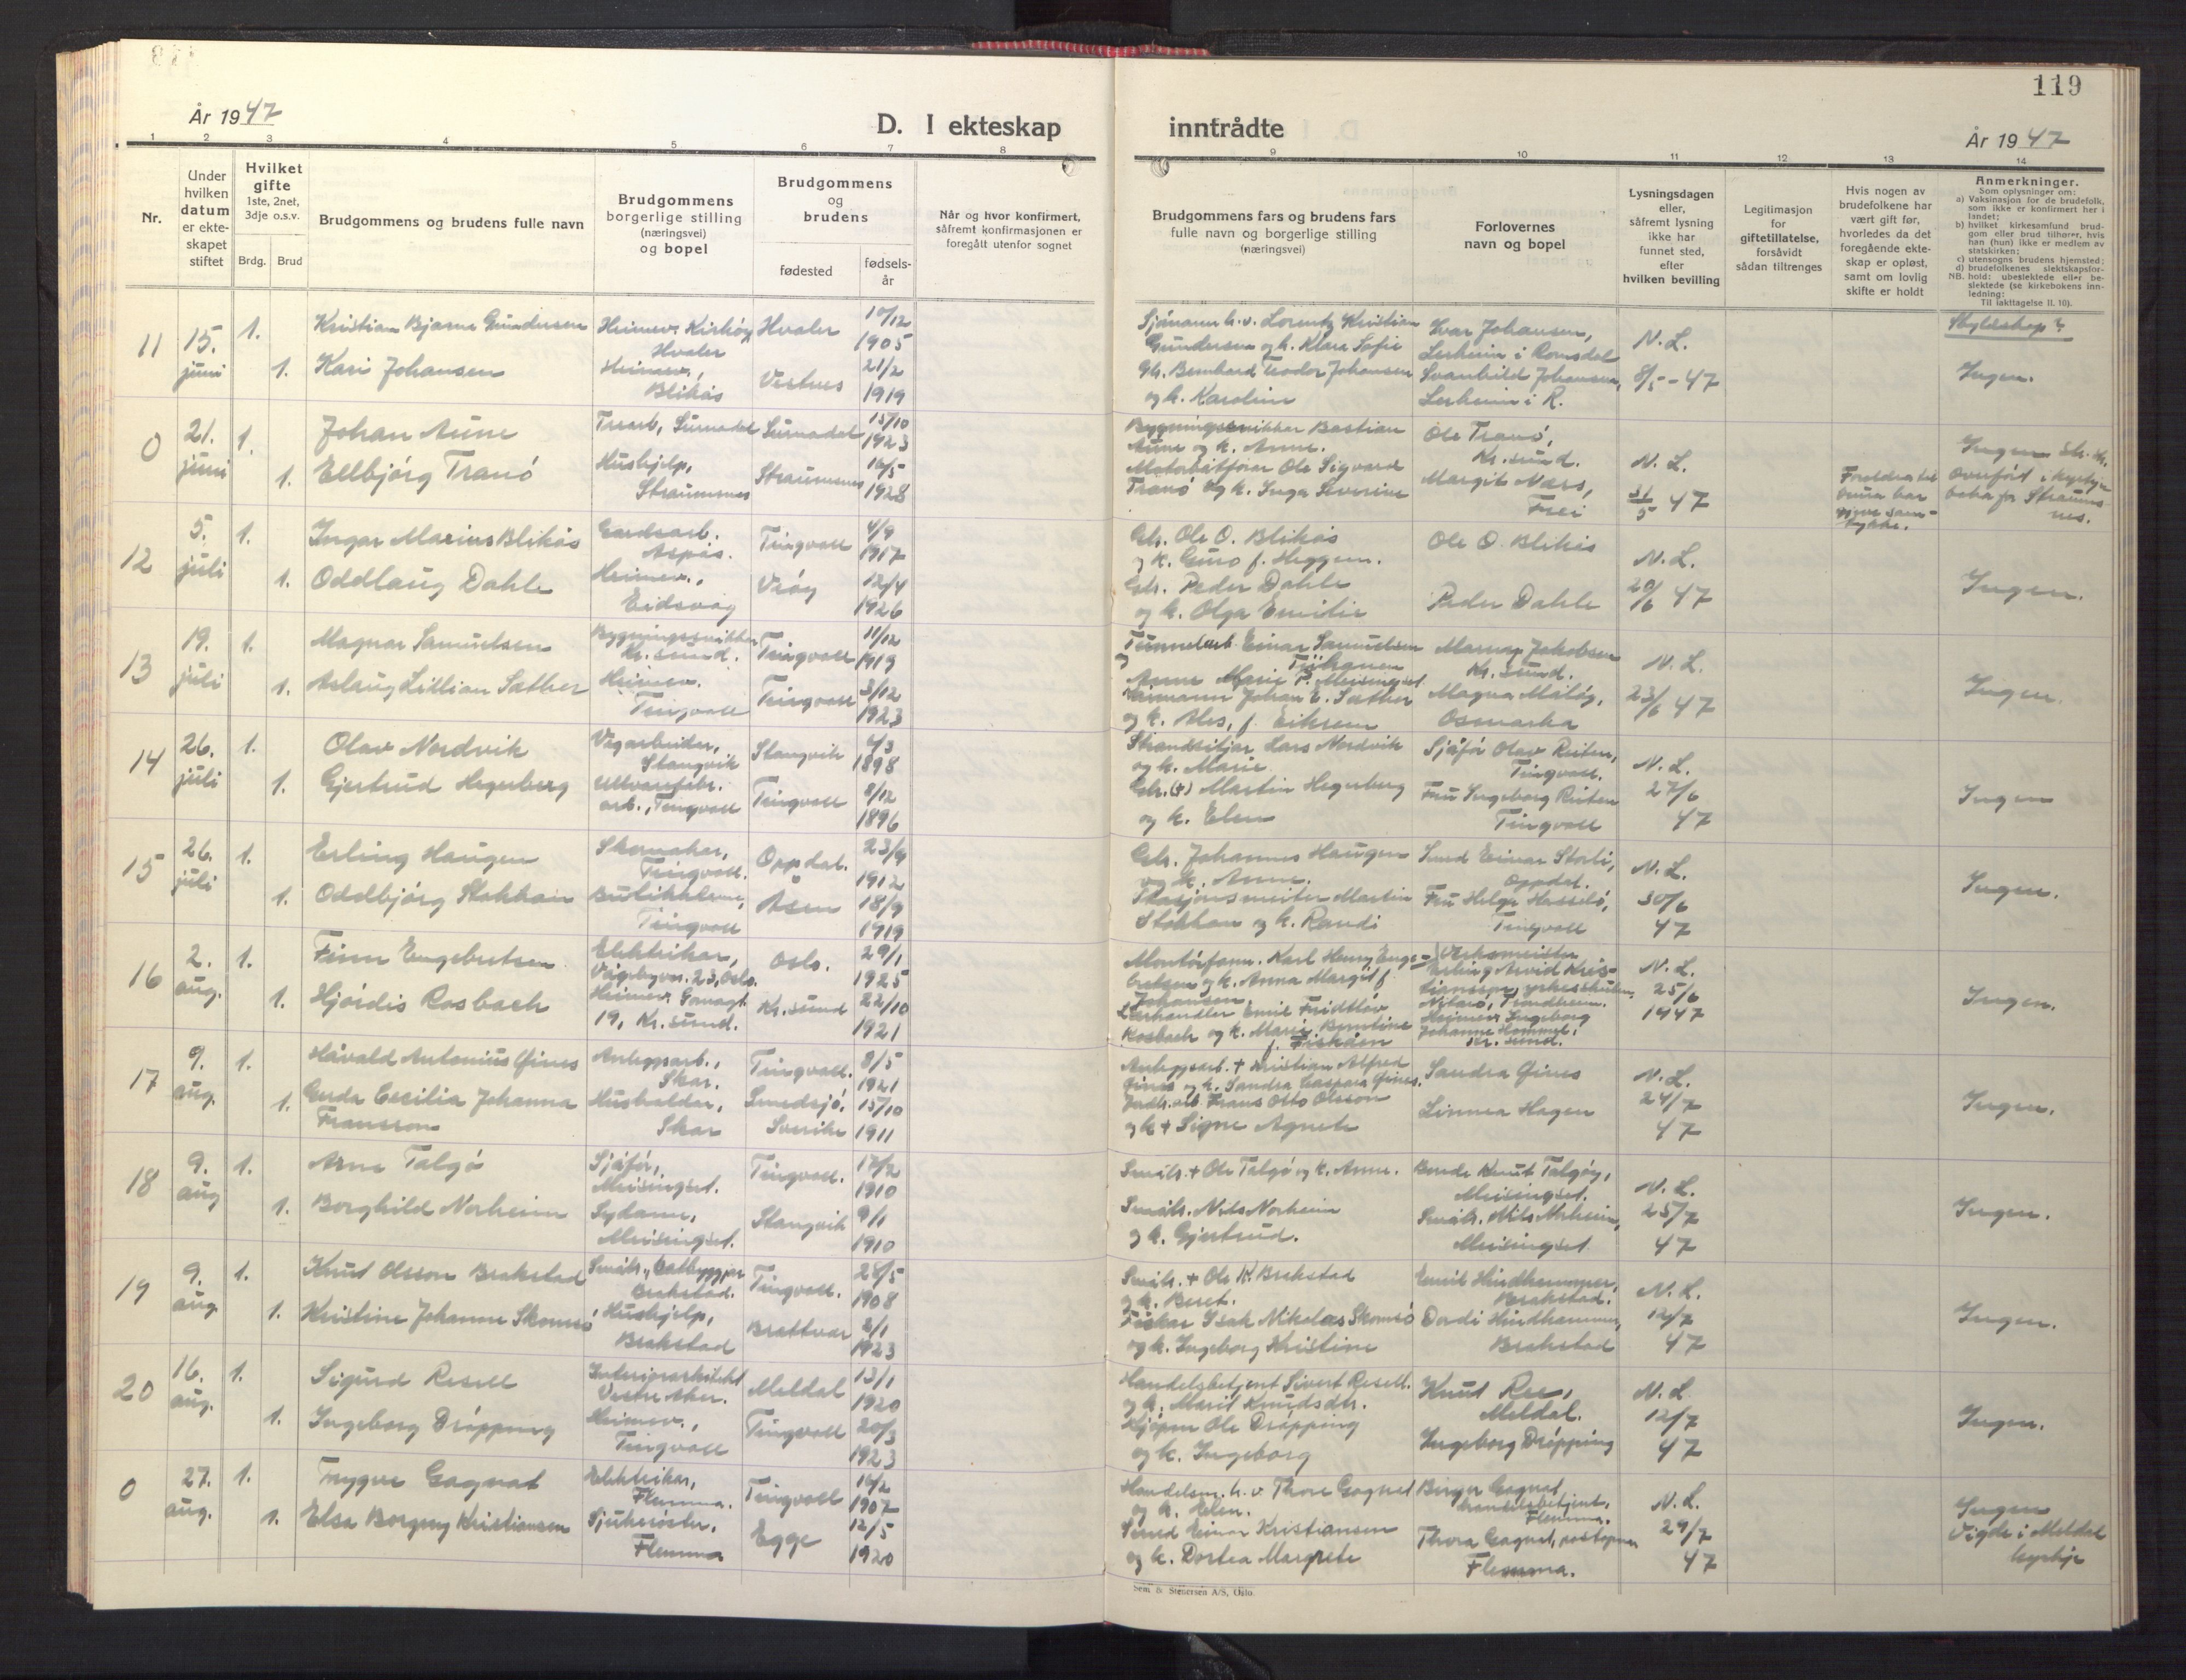 119
År 1947
D. I ekteskap
inntrådte
År 1947
1 2 3 4 5 6 7 8 9 10 11 12 13 14
Nr.
Under hvilken datum er ekteskapet stiftet
Hvilket gifte
1ste, 2net, 3dje o.s.v.
Brdg. Brud
Brudgommens og brudens fulle navn
Brudgommens borgerlige stilling (næringsvei) og bopel
Brudgommens og brudens
fødested
fødselsår
Når og hvor konfirmert, såfremt konfirmasjonen er foregått utenfor sognet
Brudgommens fars og brudens fars fulle navn og borgerlige stilling (næringsvei)
Forlovernes navn og bopel
Lysningsdagen eller, såfremt lysning ikke har funnet sted, efter hvilken bevilling
Legitimasjon for giftetillatelse, forsåvidt sådan tiltrenges
Hvis nogen av brudefolkene har vært gift før, hvorledes da det foregående ekteskap er opløst, samt om lovlig skifte er holdt
Anmerkninger.
Som oplysninger om:
a) Vaksinasjon for de brudefolk, som ikke er konfirmert her i landet;
b) hvilket kirkesamfund brudgom eller brud tilhører, hvis han (hun) ikke er medlem av statskirken;
c) utensogns brudens hjemsted;
d) brudefolkenes slektskapsforhold: ubeslektede eller beslektede (se kirkebokens innledning:
NB. Til iakttagelse II. 10).
11 15. juni 1. Kristian Bjarne Gundersen Heimev. Kirkøy Hvaler Hvaler 10/12 1905
1. Kari Johansen Heimev., Blikås Vestnes 21/2 1919
Sjømann h.v. Lorentz Kristian Gundersen og k. Klara Sofie
Gb. Bernhard Teodor Johansen og k. Karoline
Ivar Johansen, Lerheim i Romsdal
Svanhild Johansen, Lerheim i R.
N.L. 8/5 - 47
Skyldskap?
Ingen.
0 21. juni 1. Johan Aune Trearb., Surnadal Surnadal 15/10 1923
1. Ellbjørg Tranø Hushjelp, Straumsnes Straumsnes 16/5 1928
Bygningssnikkar Bastian Aune og k. Anne.
Motorbåtførar Ole Sigvard Tranø og k. Inga Severine
Ole Tranø, Kr.sund.
Margit Næss, Frei
N.L. 31/5 47
Ingen
overført i kyrkjeboka for Straumsnes.
12 5. juli 1. Ingar Marius Blikås Gardsarb. Aspås. Tingvoll 4/9 1917
1. Oddlaug Dahle Heimev., Eidsvåg Veøy 12/4 1926
Gbr. Ole O. Blikås og k. Guro f. Heggem.
Gbr. Peder Dahle og k. Olga Emilie
Ole O. Blikås
Peder Dahle
N.L. 20/6 47
Ingen.
13 19. juli 1. Magnar Samuelsen Bygningssnikkar Kr.sund. Tingvoll 11/12 1919
1. Aslaug Lillian Sæther Heimev. Tingvoll Tingvoll 3/12 1923
Tunnelarb. Einar Samuelsen og Anne Marie P. Meisingset
Johan E. Sæther og k. Als, f. Eiksem
Jakobsen Kr.sund.
Magna Måløy, Osmarka
N.L. 23/6 47
Ingen.
14 26. juli 1. Olav Nordvik Vegarbeider, Stangvik Stangvik 4/3 1898
1. Gjertrud Hegerberg Ullvarefabr. arb., Tingvoll Tingvoll 8/12 1896
Strandsitjar Lars Nordvik og k. Marie.
Gbr. (+) Martin Hegerberg og k. Elen
Sjåfør Olav Reiten, Tingvoll.
Fru Ingeborg Reiten Tingvoll
N.L. 27/6 47
Ingen
15 26. juli 1. Erling Haugen Skomaker, Tingvoll. Oppdal. 23/9 1912
1. Oddbjørg Stokkan Butikkdame, Tingvoll Åsen 18/9 1919
Gbr. Johannes Haugen og k. Anne.
Stasjonsmeister Martin Stokkan og k. Randi
Smed Einar Storli, Oppdal.
Fru Helga Hasselø, Tingvoll
N.L. 30/6 47
Ingen.
16 2. aug. 1. Finn Engebretsen Elektrikar, Vågebygn. 23, Oslo. Oslo. 29/1 1925
1. Hjørdis Rosbach Heimev. 19, Kr.sund. Kr.sund 22/10 1921
Montørform. Karl Henry Engebretsen og k. Anna Margit f. Johansen
Lærhandler Emil Fridtløv Rosbach og k. Marie Berntine f. Fiskåen
Verksmeister Erling Arvid Kristiansson, yrkesskulen, Nidarø, Trondheim.
Heimev. Ingeborg Johanne Hommel, Kr.sund.
N.L. 25/6 1947
Ingen.
17 9. aug. 1. Håvald Antonius Gines Anleggsarb., Skar. Tingvoll. 8/5 1921
1. Gerda Cecilia Johanna Fransson Hushaldar, Skar Smedsjö, Sverike 15/10 1911
Anleggsarb. + Kristian Alfred Gines og k. Sandra Caspara Gines.
Jordb.arb Frans Otto Olsson og k + Signe Agnete
Sandra Gines
Linnea Hagen
N.L. 24/7 47
Ingen.
18 9. aug 1. Arne Talgø Sjåfør, Meisingset. Tingvoll. 17/2 1910
1. Borghild Norheim Sydame, Meisingset. Stangvik 9/1 1910
Småbr. + Ole Talgø og k. Anne.
Småbr. Nils Norheim og k. Gjertrud.
Bonde Knut Talgøy, Meisingset.
Småbr. Nils Norheim, Meisingset
N.L. 25/7 47
Ingen.
19 9. aug. 1. Knut Olsson Brakstad Småbr., Båtbyggjar Brakstad. Tingvoll. 28/5 1908
1. Kristine Johanne Skomsø Hushjelp, Brakstad Brattvær 2/1 1923
Småbr. + Ole K. Brakstad og k. Beret.
Fiskar Isak Nikolas Skomsø og k. Ingeborg Kristine
Emil Hindhammer, Brakstad.
Dordi Hindhammer, Brakstad
N.L. 12/7 47
Ingen.
20 16. aug. 1. Sigurd Resell Interiørarkitekt Vestre Aker. Meldal 13/1 1920
1. Ingeborg Drøpping Heimev., Tingvoll Tingvoll 20/3 1923
Handelsbetjent Sivert Resell. og k. Marit Knudsdtr.
Kjøpm Ole Drøpping og k. Ingeborg
Knut Ree, Meldal.
Ingeborg Drøpping
N.L. 12/7 47
Ingen.
0 27. aug. 1. Trygve Gagnat Elektrikar, Flemma. Tingvoll 16/2 1907
1. Elsa Borgny Kristiansen Sjukesøster, Flemma Egge 12/5 1920
Handelsm. h.v. Thore Gagnat og k. Helen.
Smed Einar Kristiansen og k. Dortea Margrete
Birger Gagnat, handelsbetjent, Flemma.
Thora Gagnat, postopnar Flemma.
N.L. 29/7 47
Ingen
Vigde i Meldal kyrkje
Sem & Stenersen A/S, Oslo.